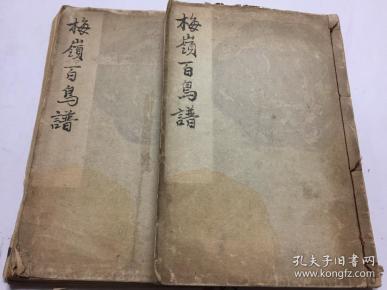 梅嶺百鳥譜
梅嶺百鳥譜
孔夫子旧书网
www.kongfz.com